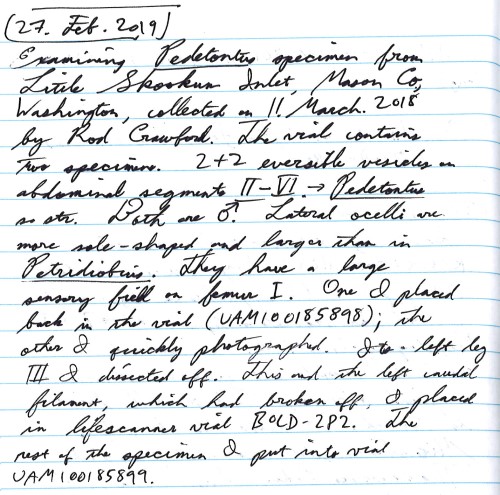 (27. Feb. 2019)
Examining Pedetontus specimen from
Little Skookum Inlet, Mason Co,
Washington, collected on 11. March. 2018
by Rod Crawford. The vial contains
two specimens. 2+2 eversible vesicles on
abdominal segments II-VI. → Pedetontus
so str. Both are ♂. Lateral ocelli are
more sole-shaped and larger than in
Petridiobius. They have a large
sensory field on femur I. One I placed
back in the vial (UAM100185898); the
other I quickly photographed. Its left leg
III I dissected off. This and the left caudal
filament, which had broken off, I placed
in lifescanner vial BOLD-2P2. The
rest of the specimen I put into vial
UAM100185899.